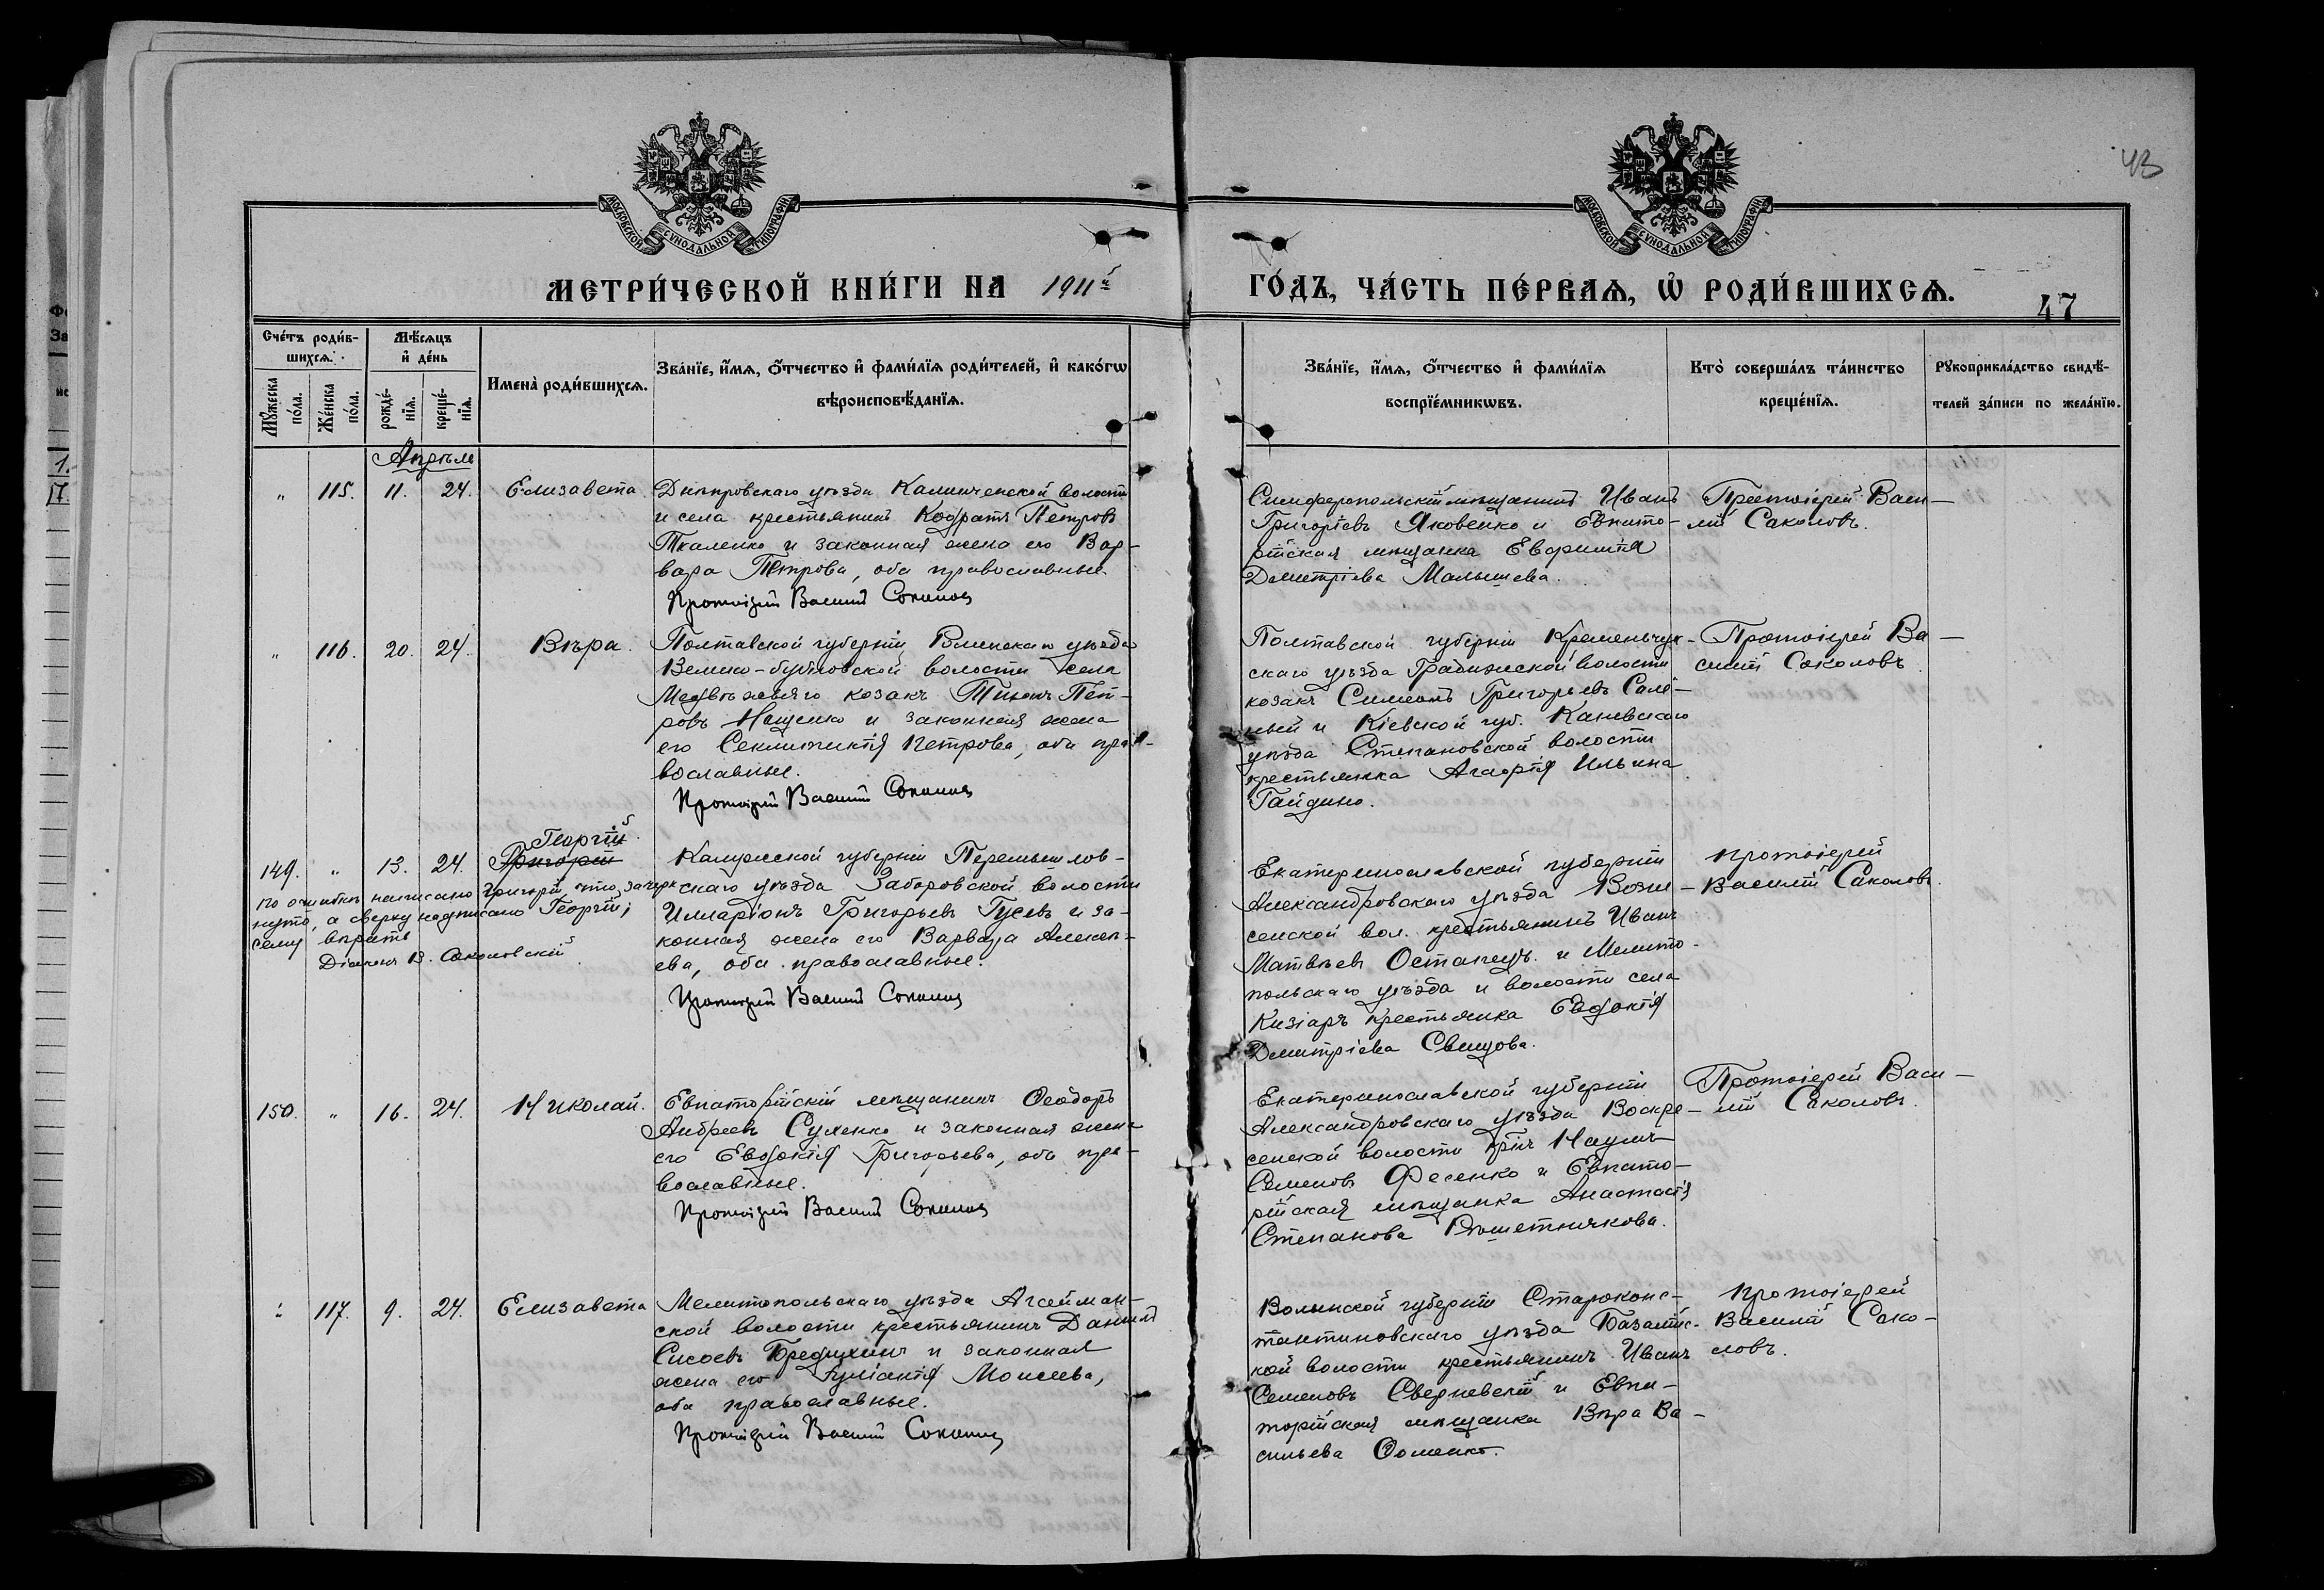 43
МОСКОВСКОЙ СУНОДАЛЬНОЙ ТИПОГРАФІИ
МОСКОВСКОЙ СУНОДАЛЬНОЙ ТИПОГРАФІИ
МЕТРИ́ЧЕСКОЙ КНИ́ГИ НА 1911й
ГО́ДЪ, ЧА́СТЬ ПЕ́РВАѦ, Ѡ҆ РОДИ́ВШИХСѦ.
47
Сче́тъ роди́в-
шихсѧ.
Мꙋ́жеска по́ла.
Же́нска по́ла.
Мѣ́сѧцъ
и҆ де́нь
рожде́-
нїѧ.
креще́-
нїѧ.
Имена̀ роди́вшихсѧ.
Зва́нїе, и҆́мѧ, ѻ҆́тчество и҆ фами́лїѧ роди́телей, и҆ како́гѡ
вѣроисповѣ́данїѧ.
Зва́нїе, и҆́мѧ, ѻ҆́тчество и҆ фами́лїѧ
воспрїе́мникѡвъ.
Кто̀ соверша́лъ та́инство
креще́нїѧ.
Рꙋкоприкла́дство свидѣ́-
телей за́писи по жела́нїю.
Апрѣль
" 115. 11. 24. Елизавета
Днѣпровскаго уѣзда Каланчакской волости
и села крестьянинъ Кодратъ Петровъ
Ткаленко и законная жена его Вар-
вара Петрова, оба православные.
Протоіерей Василій Соколовъ
Симферопольскій мѣщанинъ Иванъ
Григоріевъ Яковенко и Евпато-
рійская мѣщанка
Димитріева Малышева.
Протоіерей Васи-
лій Соколовъ.
" 116. 20. 24. Вѣра.
Полтавской губерніи Роменскаго уѣзда
Велико-бубновской волости села
Медвѣжьяго козакъ Тихонъ Пет-
ровъ Нещенко и законная жена
его Секлитикія Петрова, оба пра-
вославные.
Протоіерей Василій Соколовъ
Полтавской губерніи Кременчуг-
скаго уѣзда Градижской волости
козакъ Симеонъ Григорьевъ Соле-
ный и Кіевской губ. Каневскаго
уѣзда Степановской волости
крестьянка Агафія Ильина
Гайдино.
Протоіерей Ва-
силій Соколовъ
Георгій
149. " 13. 24. Григорій
По ошибкѣ написано Григорій, что зачерк
нуто, а сверху надписано Георгій;
сему вѣрить
Діаконъ В. Соколовскій
Калужской губерніи Перемышлов-
скаго уѣзда Заборовской волости
Илларіонъ Григорьевъ Гусевъ и за-
конная жена его Варвара Алексе-
ева, оба православные.
Протоіерей Василій Соколовъ
Екатеринославской губерніи
Александровскаго уѣзда Возне-
сенской вол. крестьянинъ Иванъ
Матвѣевъ Остапецъ и Мелито-
польскаго уѣзда и волости села
Кизіаръ крестьянка Евдокія
Димитріева Свищова.
Протоіерей
Василій Соколовъ.
150. " 16. 24. Николай.
Евпаторійскій мѣщанинъ Ѳеодоръ
Андреевъ Сухенко и законная жена
его Евдокія Григорьева, оба пра-
вославные.
Протоіерей Василій Соколовъ
Екатеринославской губерніи
Александровскаго уѣзда Воскре-
сенской волости кр-нъ Наумъ
Семеновъ Фесенко и Евпато-
рійская мѣщанка Анастасія
Степанова Рѣшетникова.
Протоіерей Васи-
лій Соколовъ.
" 117. 9. 24. Елизавета
Мелитопольскаго уѣзда Агайман-
ской волости крестьянинъ Даніилъ
Сисоевъ Бредихинъ и законная
жена его Гуліанія Моисеева,
оба православные.
Протоіерей Василій Соколовъ
Волынской губерніи Староконс-
тантиновскаго уѣзда Базалійс-
кой волости крестьянинъ Иванъ
Семеновъ Сверневскій и Евпа-
торійская мѣщанка Вѣра Ва-
сильева Ѳоменко.
Протоіерей
Василій Соко-
ловъ.